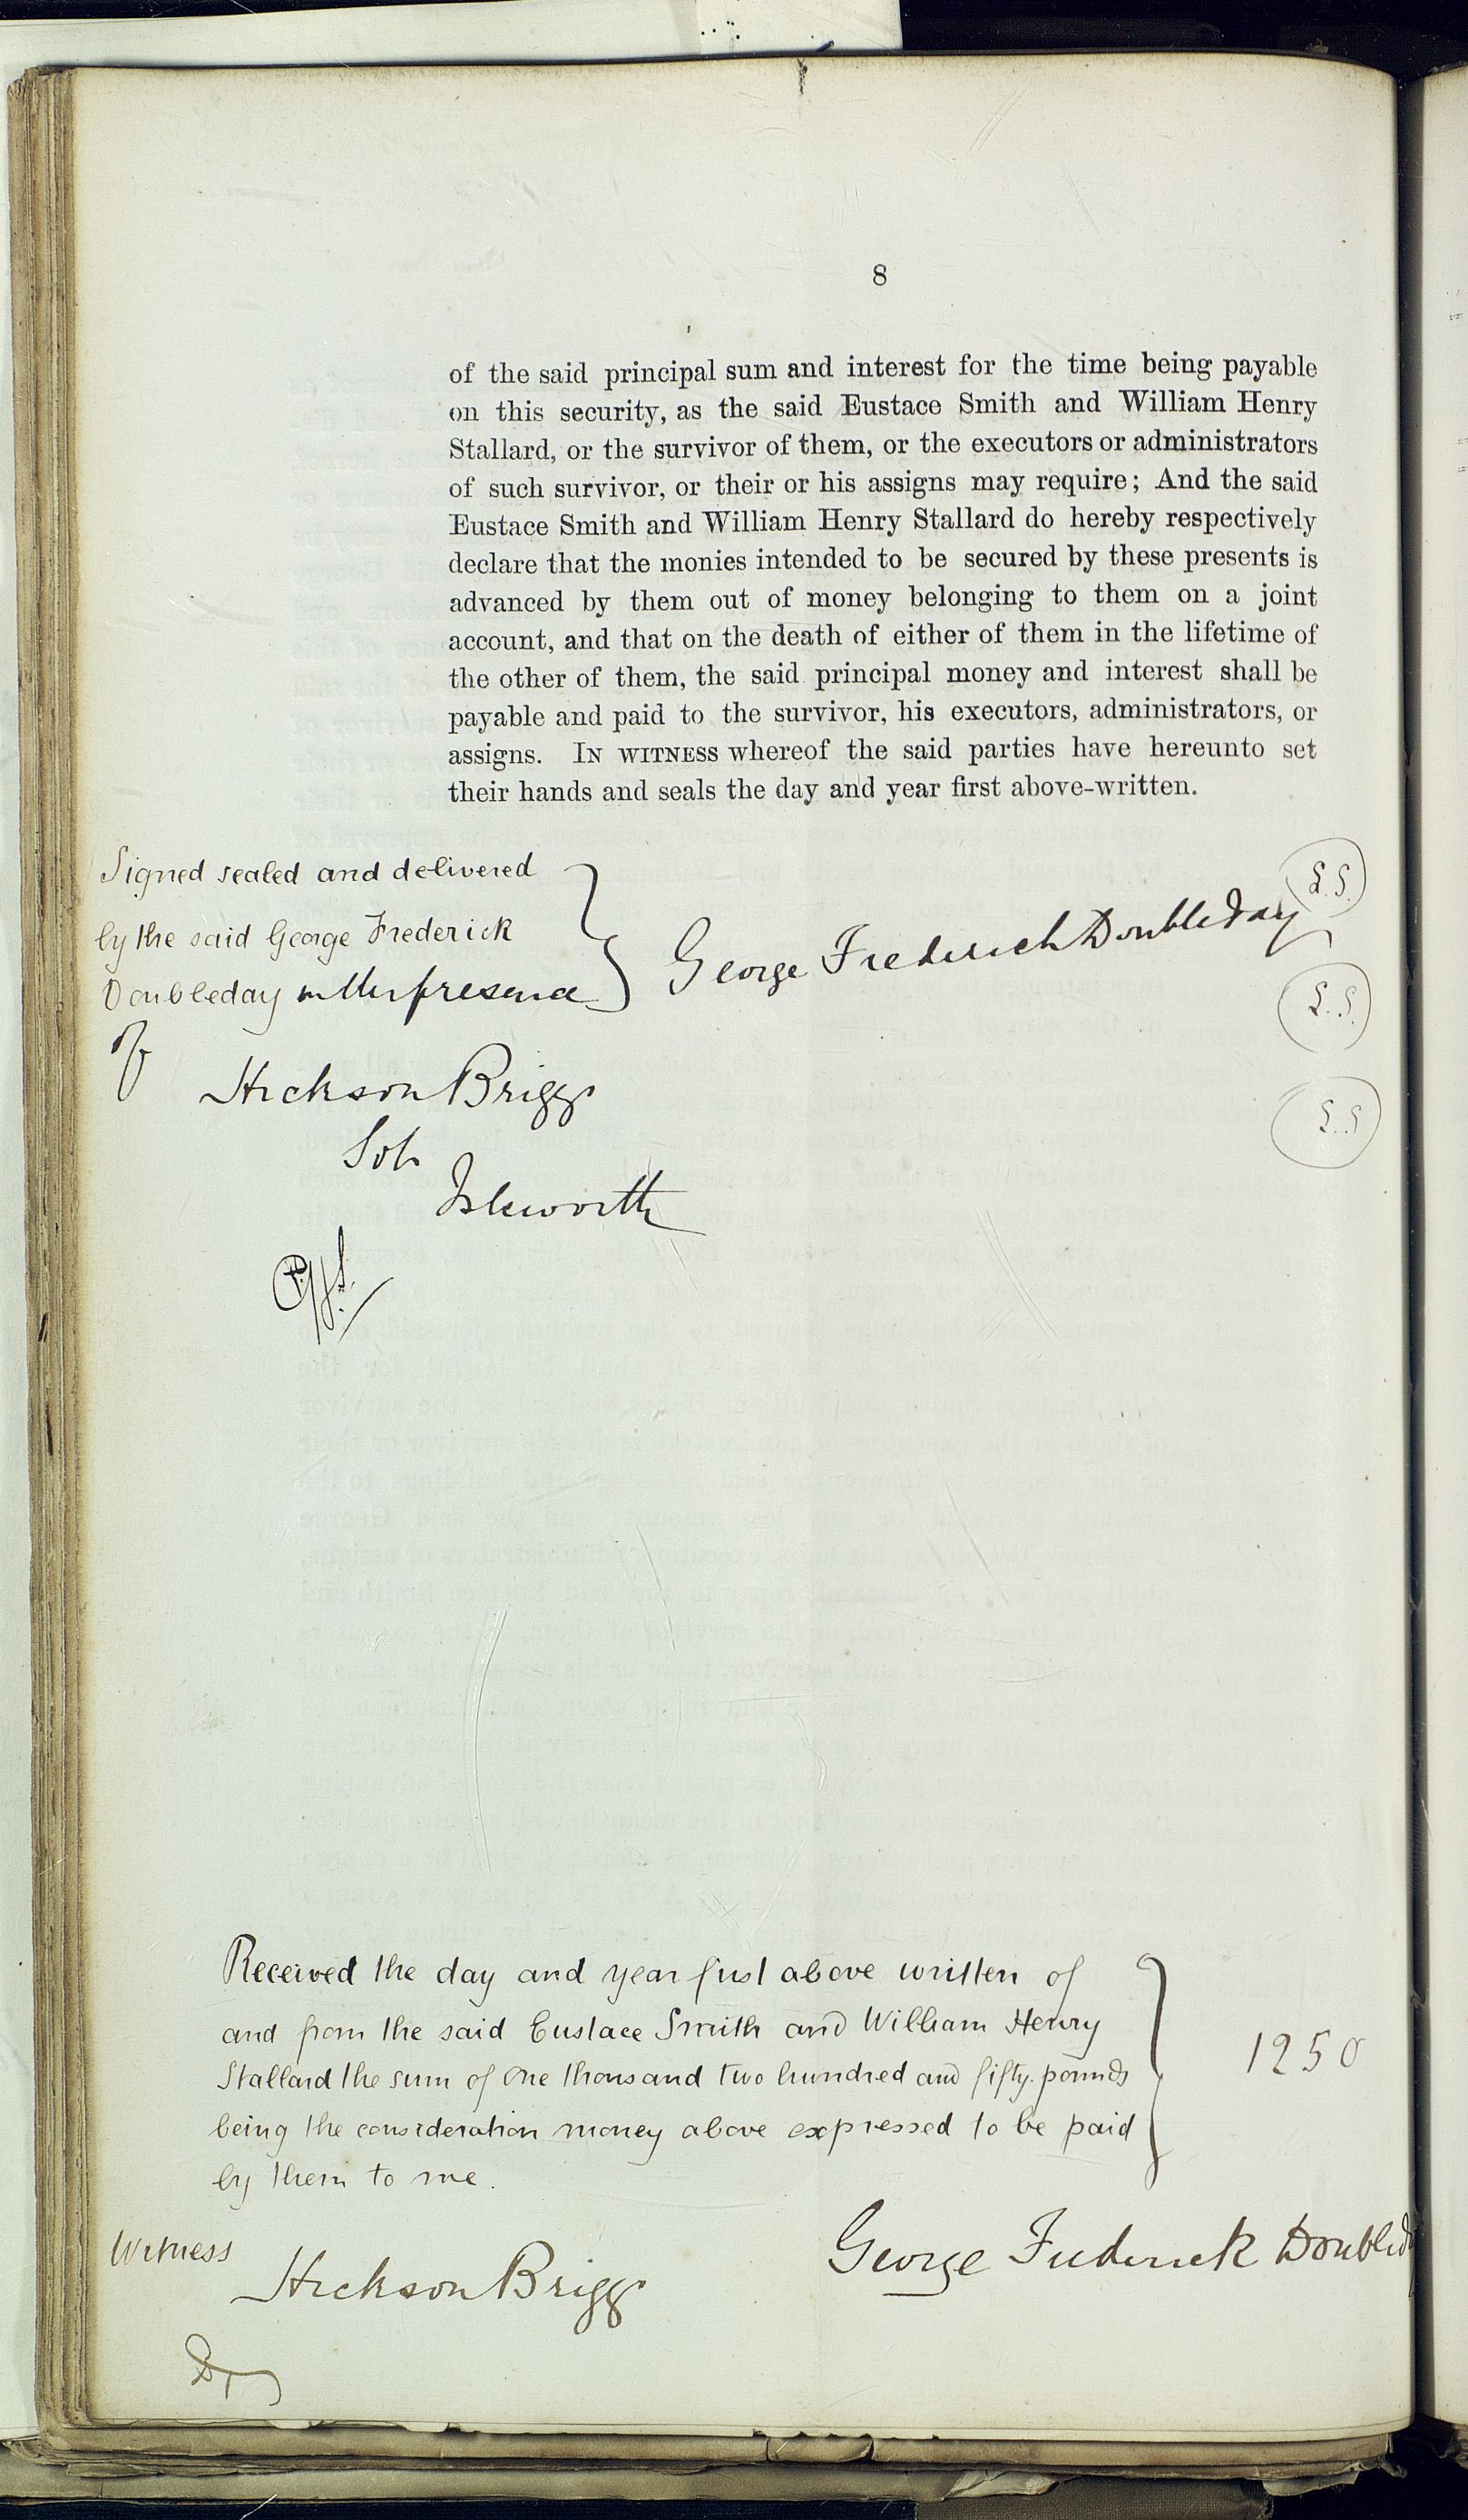 8
of the said principal sum and interest for the time being payable
on this security, as the said Eustace Smith and William Henry
Stallard, or the survivor of them, or the executors or administrators
of such survivor, or their or his assigns may require; And the said
Eustace Smith and William Henry Stallard do hereby respectively
declare that the monies intended to be secured by these presents is
advanced by them out of money belonging to them on a joint
account, and that on the death of either of them in the lifetime of
the other of them, the said principal money and interest shall be
payable and paid to the survivor, his executors, administrators, or
assigns. IN WITNESS whereof the said parties have hereunto set
their hands and seals the day and year first above-written.
Signed sealed and delivered
by the said George Frederick
Doubleday in the presence
of
George Frederick Doubleday
L.S.
L.S.
L.S
Hickson Briggs
Solr
Isleworth
Received the day and year first above written of
and from the said Eustace Smith and William Henry
Stallard the sum of One thousand two hundred and fifty pounds
being the consideration money above expressed to be paid
by them to me.
1250
George Frederick Doubled
Witness
Hickson Briggs